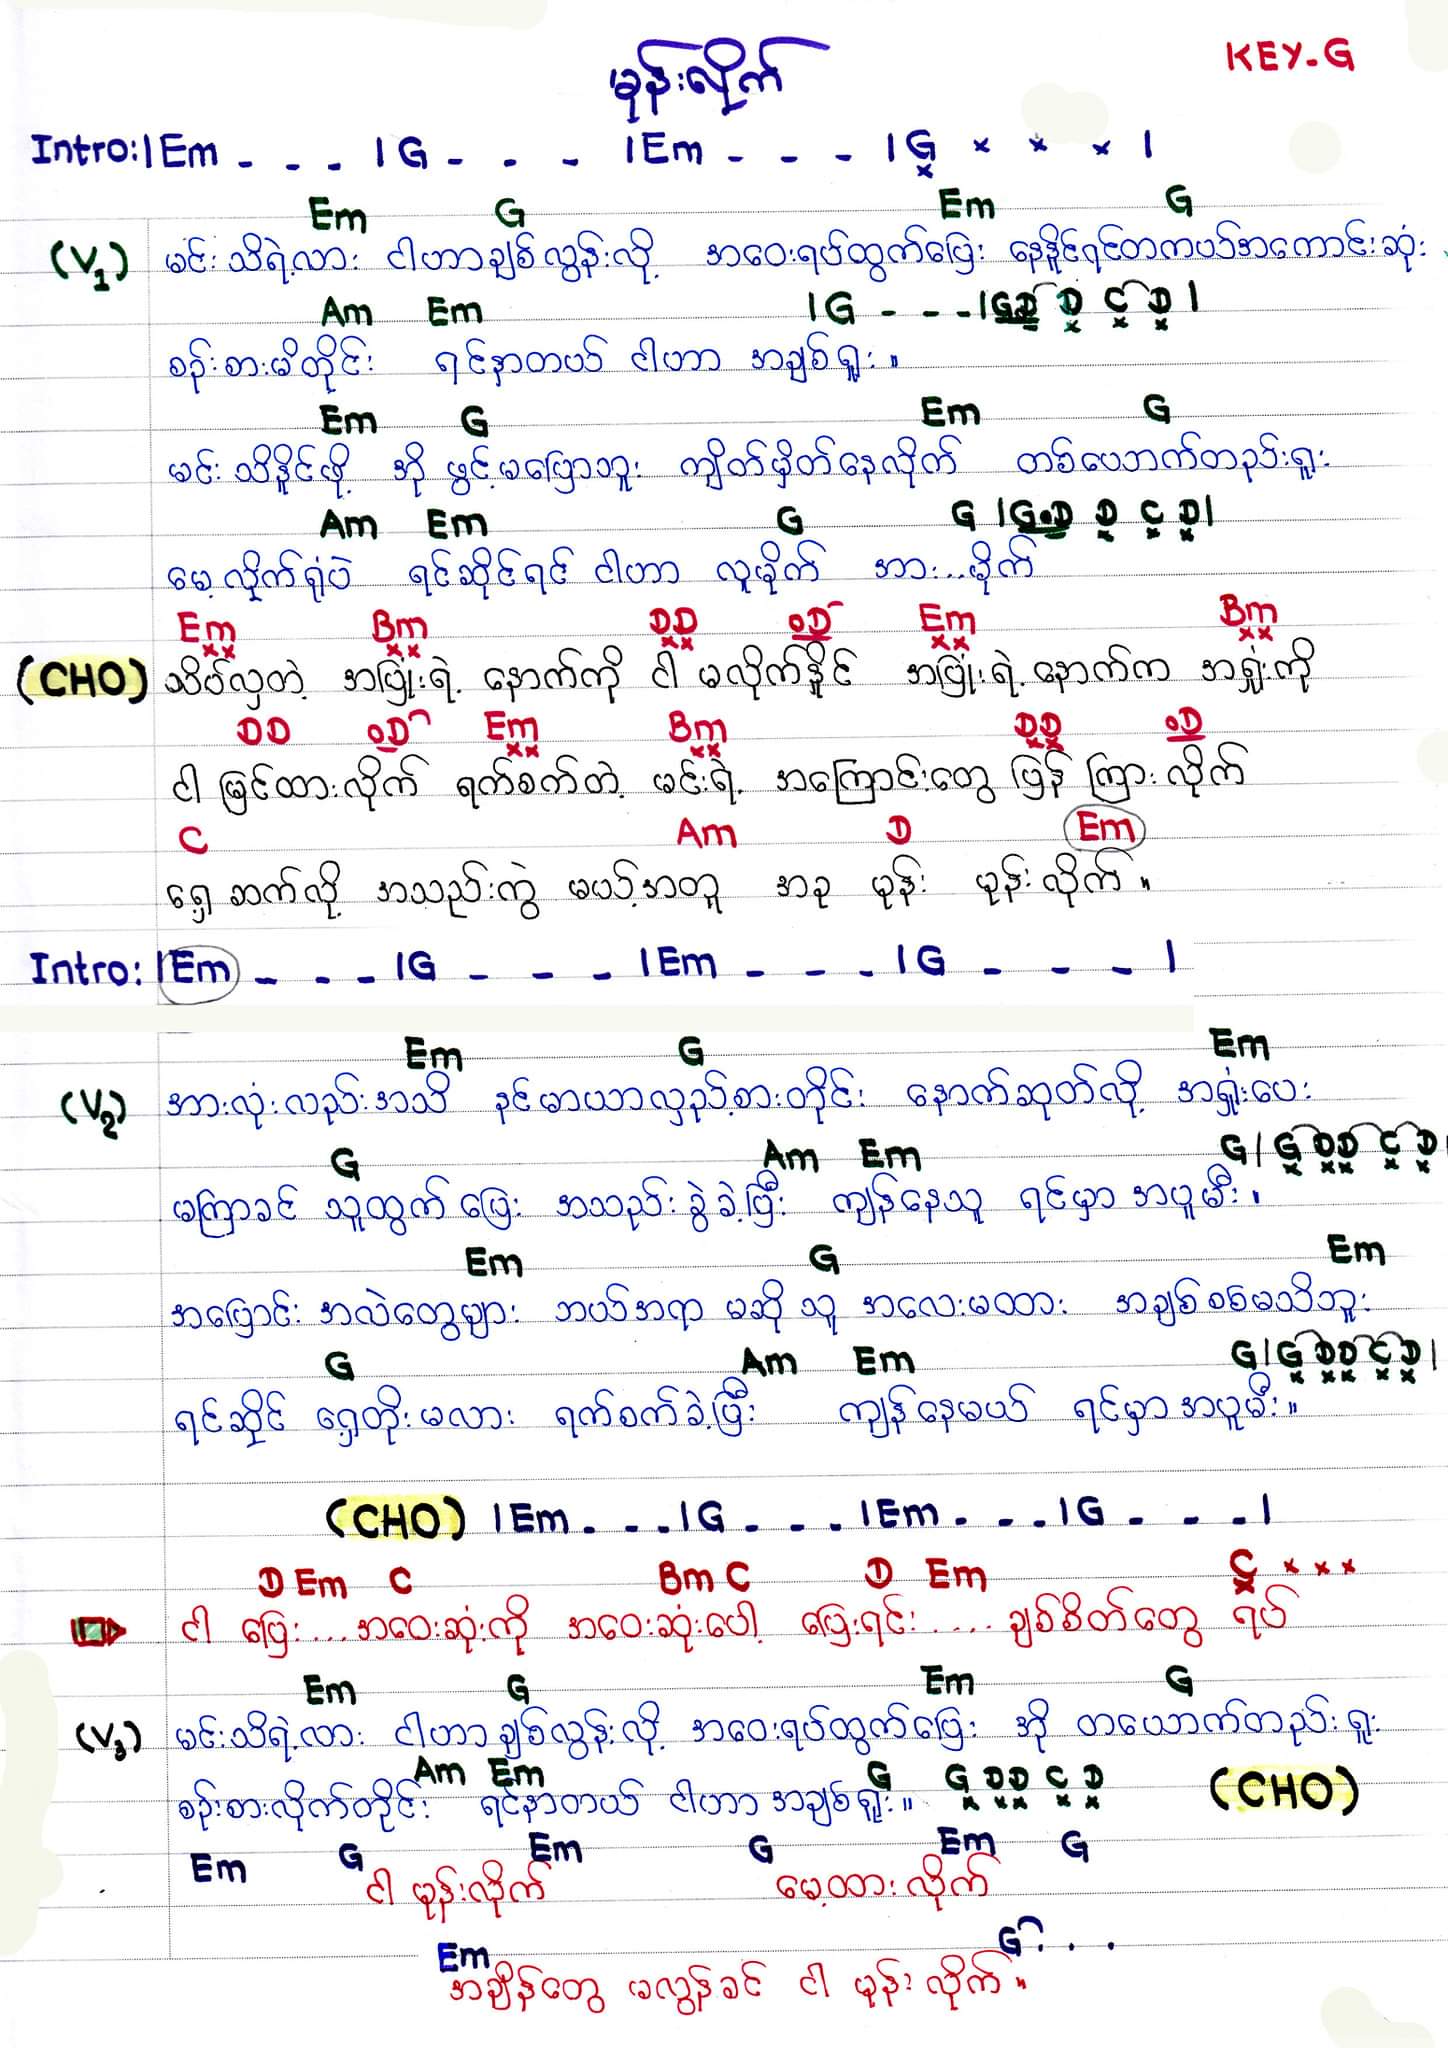 မုန်းလိုက်
KEY-G
Intro: | Em - - - | G - - - | Em - - - | G x x x |
Em G Em G
(V1) မင်းသိရဲ့လား ငါဟာချစ်လွန်းလို့ အဝေးရပ်ထွက်ပြေး နေနိုင်ရင်တကယ်အကောင်းဆုံး
Am Em | G - - - | G D D C D |
စဉ်းစားမိတိုင်း ရင်နာတယ် ငါဟာ အချစ်ရူး။
Em G Em G
မင်းသိနိုင်ဖို့ အို ဖွင့်မပြောဘူး ကျိတ်မှိတ်နေလိုက် တစ်ယောက်တည်းရူး
Am Em G G | G.D D C D |
မေ့လိုက်ရုံပဲ ရင်ဆိုင်ရင် ငါဟာ လူမိုက် အား...မိုက်
Em Bm DD oD Em Bm
(CHO) သိပ်လှတဲ့ အပြုံးရဲ့ နောက်ကို ငါ မလိုက်နိုင် အပြုံးရဲ့ နောက်က အရှုံးကို
DD oD Em Bm DD oD
ငါ မြင်ထားလိုက် ရက်စက်တဲ့ မင်းရဲ့ အကြောင်းတွေ ပြန် ကြားလိုက်
C Am D Em
ရှေ့ဆက်လို့ အသည်းကွဲ မယ့်အတူ အခု မုန်း မုန်းလိုက်။
Intro: | Em - - - | G - - - | Em - - - | G - - - |
Em G Em
(V2) အားလုံးလည်းအသိ နင်မာယာလှည့်စားတိုင်း နောက်ဆုတ်လို့ အရှုံးပေး
G Am Em G | G DD C D |
မကြာခင် သူထွက်ပြေး အသည်းခွဲခဲ့ပြီး ကျန်နေသူ ရင်မှာ အပူမီး။
Em G Em
အပြောင်း အလဲတွေများ ဘယ်အရာ မဆို သူ အလေးမထား အချစ်စစ်မသိဘူး
G Am Em G | G DD C D |
ရင်ဆိုင် ရှေ့တိုးမလား ရက်စက်ခဲ့ပြီး ကျန်နေမယ် ရင်မှာအပူမီး။
(CHO) | Em - - - | G - - - | Em - - - | G - - - |
D Em C Bm C D Em C x x x
ငါ ပြေး... အဝေးဆုံးကို အဝေးဆုံးပေါ့ ပြေးရင်း.... ချစ်စိတ်တွေ ရပ်
Em G Em G
(V3) မင်းသိရဲ့လား ငါဟာချစ်လွန်းလို့ အဝေးရပ်ထွက်ပြေး အို တယောက်တည်းရူး
Am Em G G DD C D (CHO)
စဉ်းစားလိုက်တိုင်း ရင်နာတယ် ငါဟာအချစ်ရူး။
Em G Em G Em G
ငါ မုန်းလိုက် မေ့ထားလိုက်
Em G . . .
အချိန်တွေ မလွန်ခင် ငါ မုန်းလိုက်။